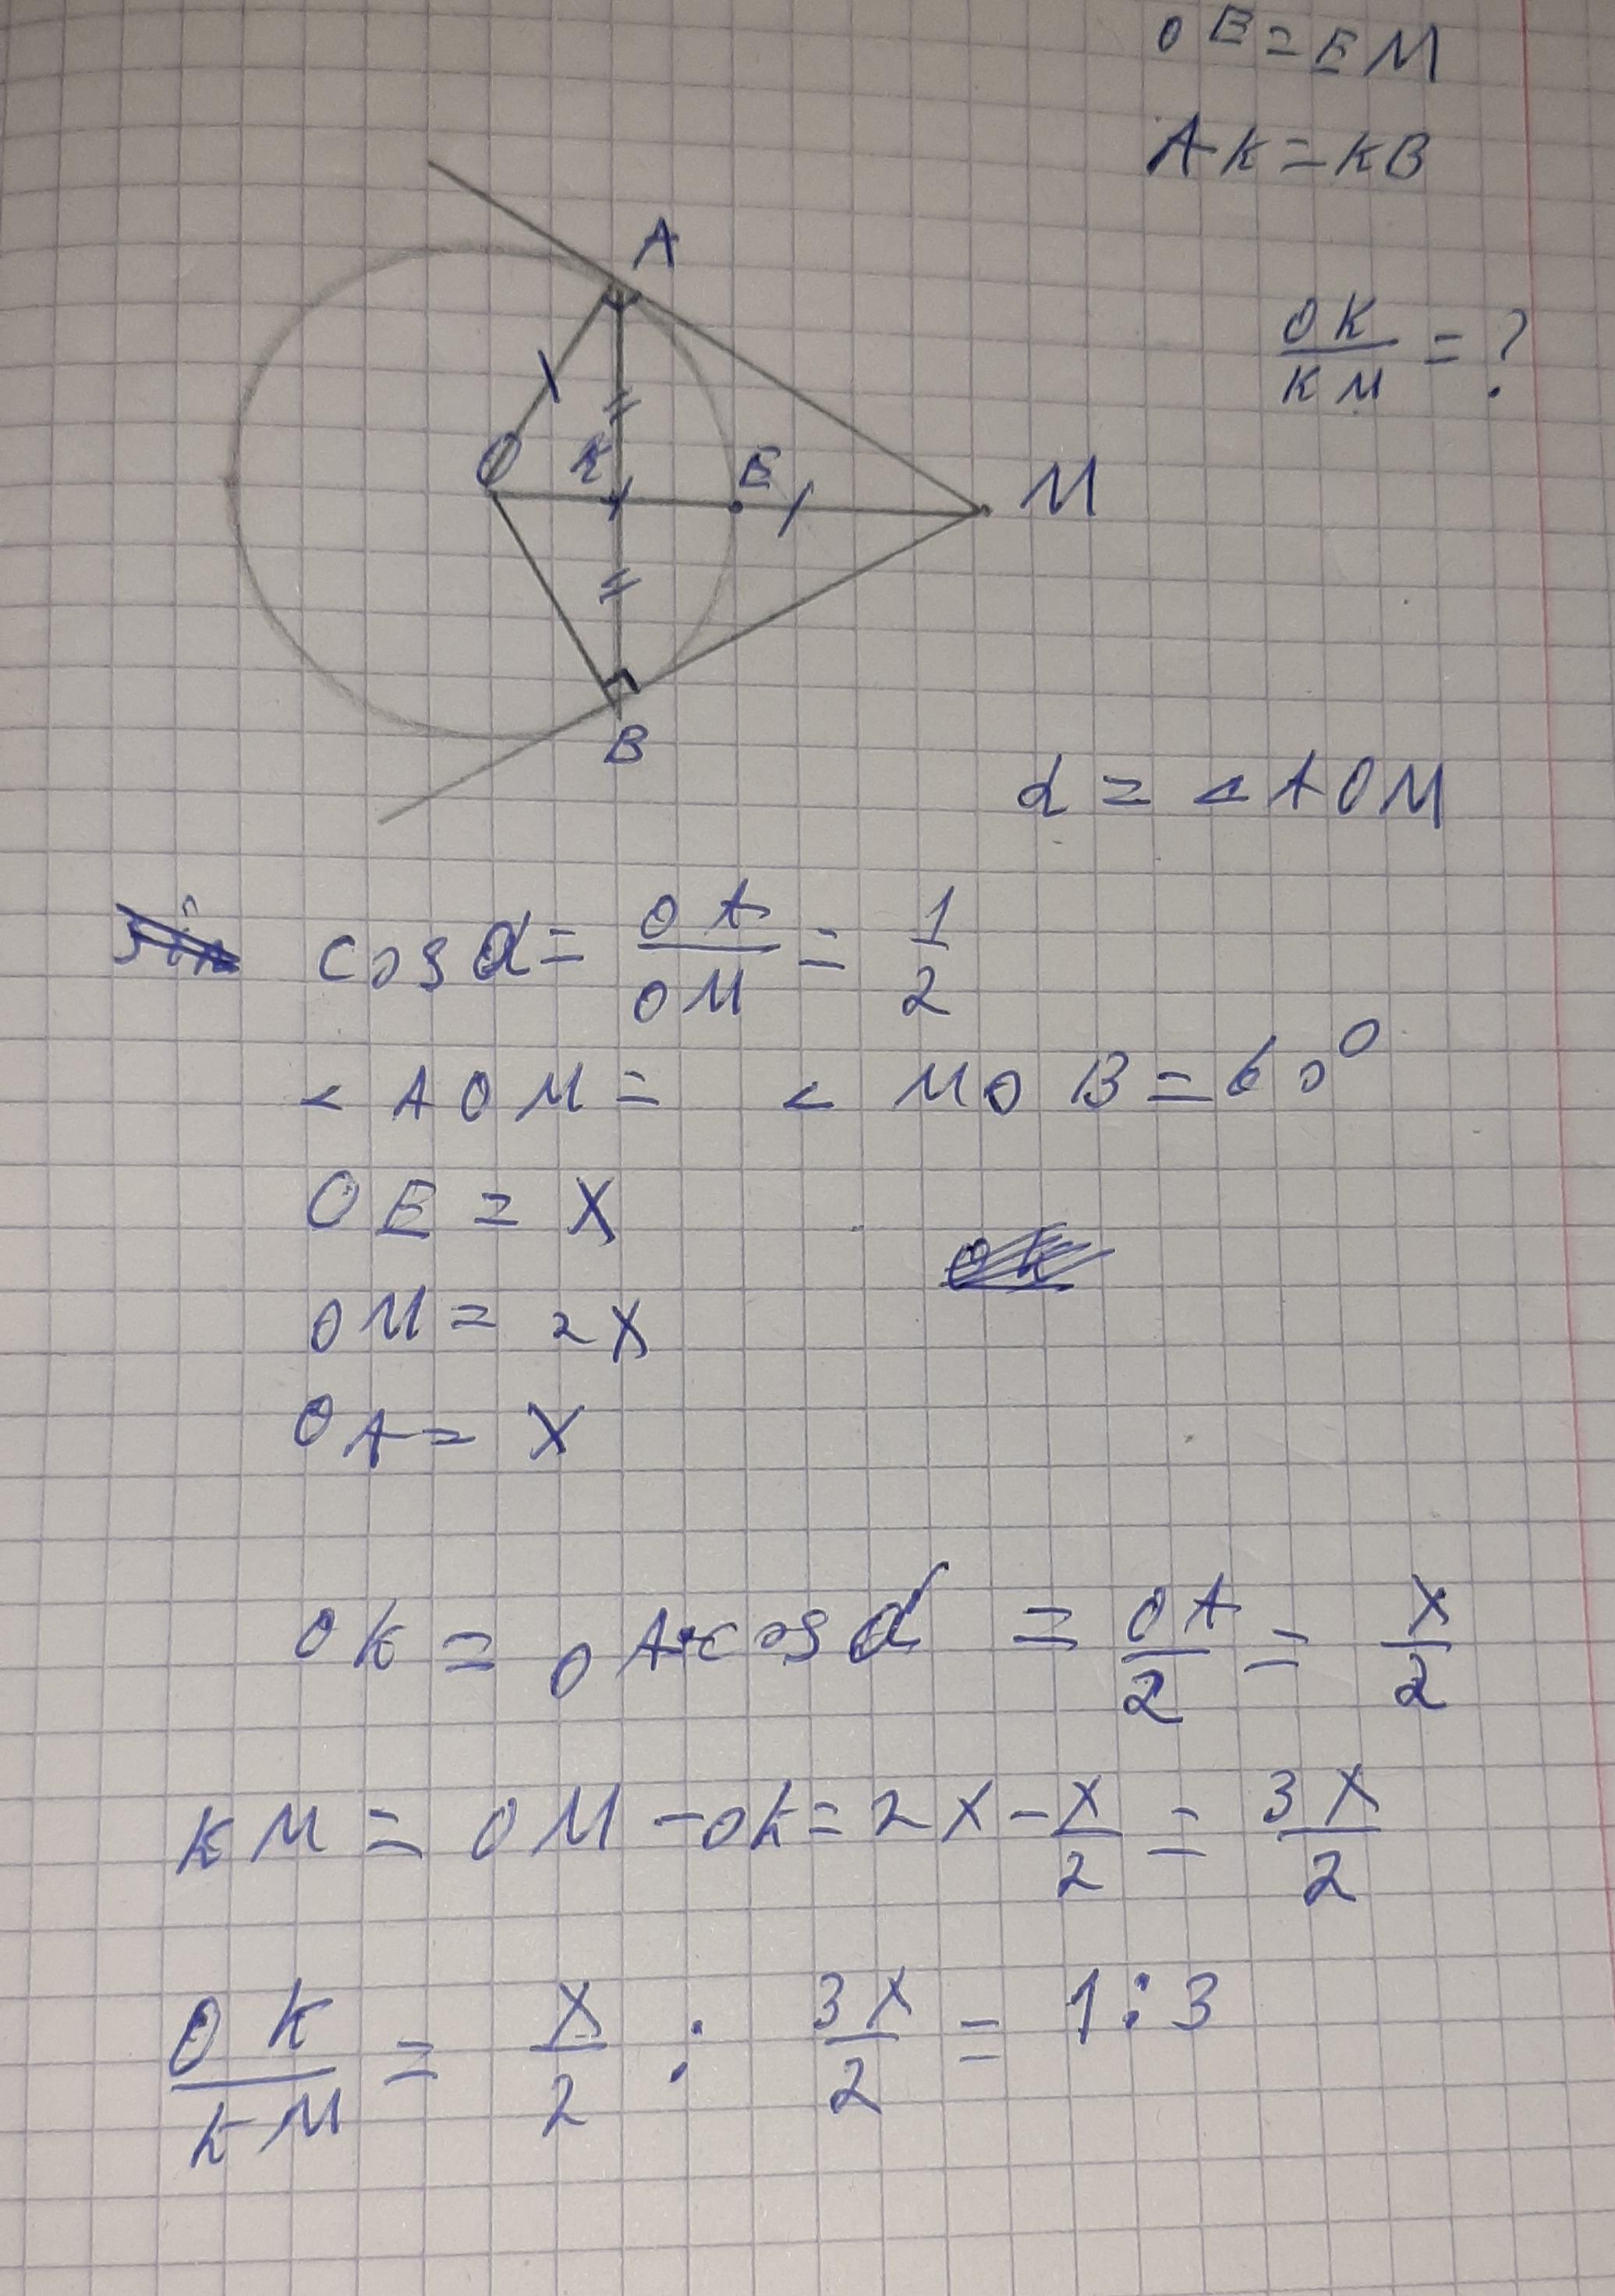 OE = EM
AK = KB
OK/KM = ?
A
O K E M
B
α = ∠AOM
cos α = OA/OM = 1/2
∠AOM = ∠MOB = 60°
OE = x
OM = 2x
OA = x
OK = OA·cos α = OA/2 = x/2
KM = OM - OK = 2x - x/2 = 3x/2
OK/KM = x/2 : 3x/2 = 1:3